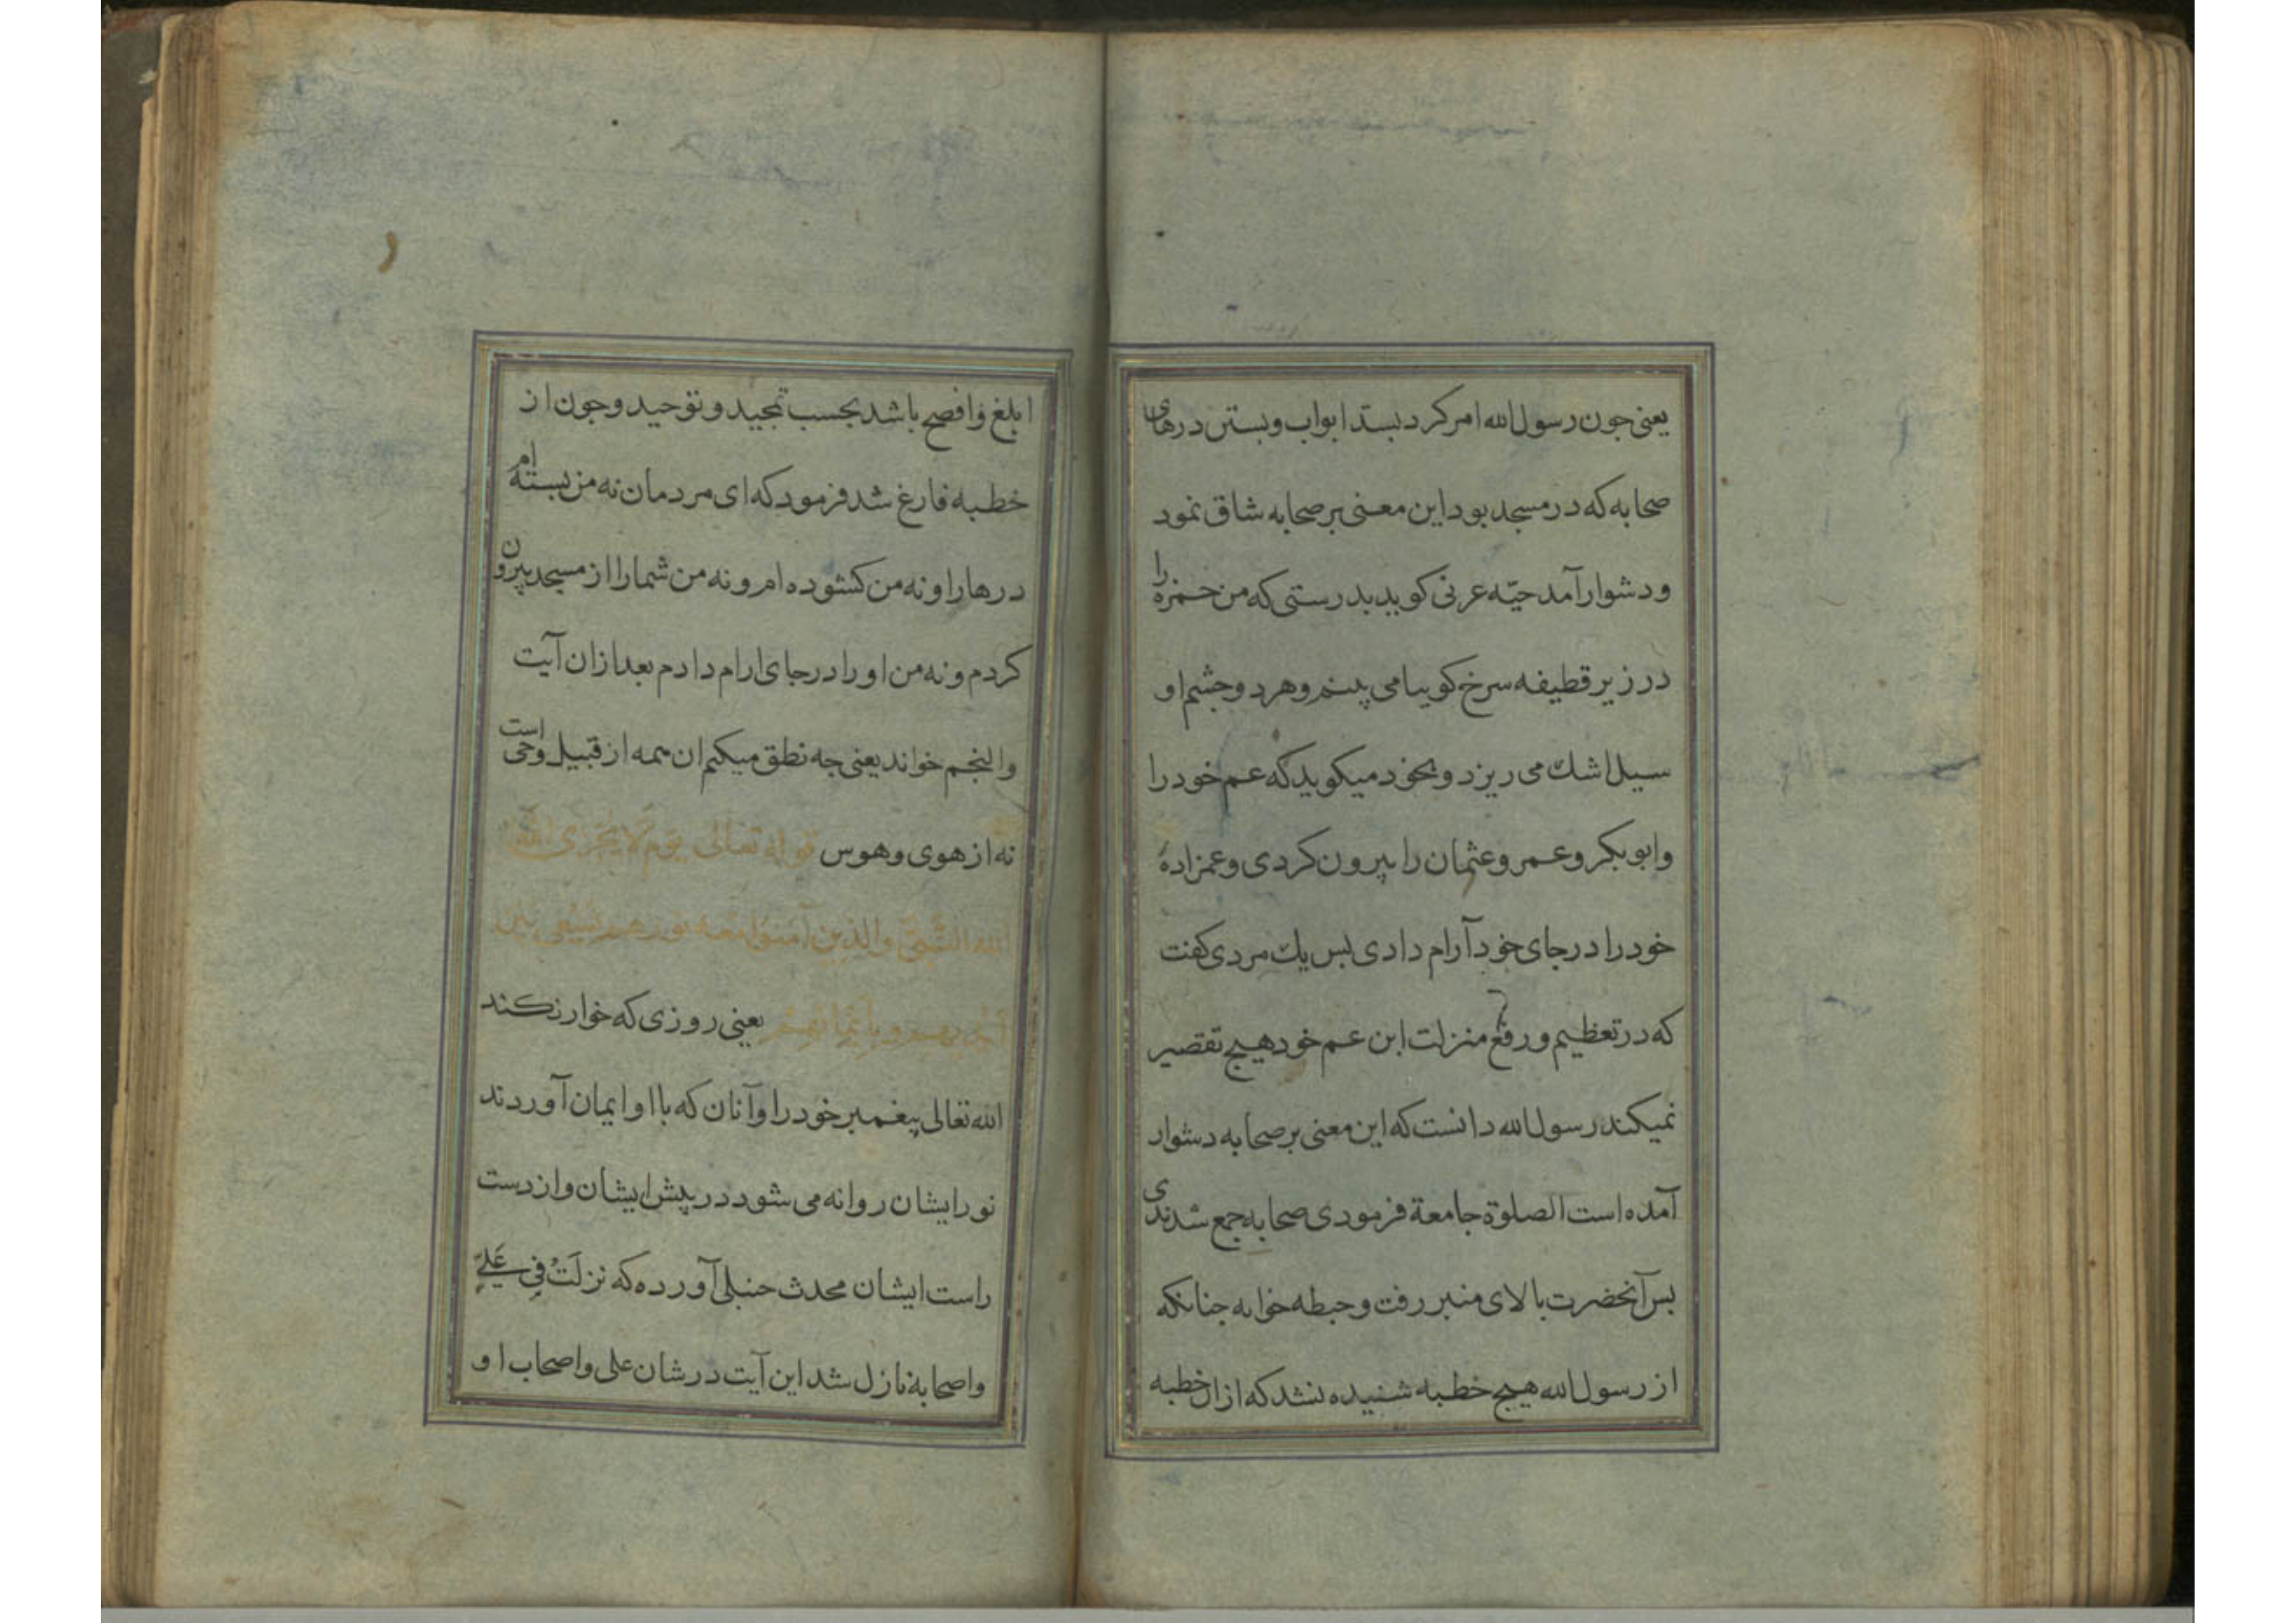 یعنی جون رسول الله امر کرد بسد ابواب و بستن درهای
صحابه که در مسجد بود این معنی بر صحابه شاق نمود
و دشوار آمد حیّه عرنی کوید بدرستی که من حمزه را
در زیر قطیفه سرخ کوییا می بینم و هر دو جشم او
سیل اشک می ریزد و بخود میکوید که عم خود را
و ابو بکر و عمر و عثمان را بیرون کردی و عمزادهٔ
خود را در جای خود آرام دادی بس یک مردی کفت
که در تعظیم و رفع منزلت ابن عم خود هیچ تقصیر
نمیکند رسول الله دانست که این معنی بر صحابه دشوار
آمده است الصلوة جامعة فرمودی صحابه جمع شدندی
بس آنحضرت بالای منبر رفت و خطبه خوانه جنانکه
از رسول الله هیچ خطبه شنیده نشد که ازان خطبه
ابلغ و افصح باشد بحسب تمجید و توحید و جون از
خطبه فارغ شد فرمود که ای مردمان نه من بسته ام
درها را و نه من کشوده ام و نه من شما را از مسجد بیرون
کردم و نه من او را در جای ارام دادم بعد ازان آیت
والنجم خواند یعنی جه نطق میکنم ان همه از قبیل وحی است
نه از هوی و هوس قوله تعالی یوم لا یخزی الله
الله النبیّ والذین آمنوا معه نورهم یسعی بین
ایدیهم و بایمانهم یعنی روزی که خوار نکند
الله تعالی پیغمبر خود را و آنان که با او ایمان آوردند
نور ایشان روانه می شود در پیش ایشان و از دست
راست ایشان محدث حنبلی آورده که نزلَتْ فی عَلیٍّ
و اصحابه نازل شد این آیت در شان علی و اصحاب او